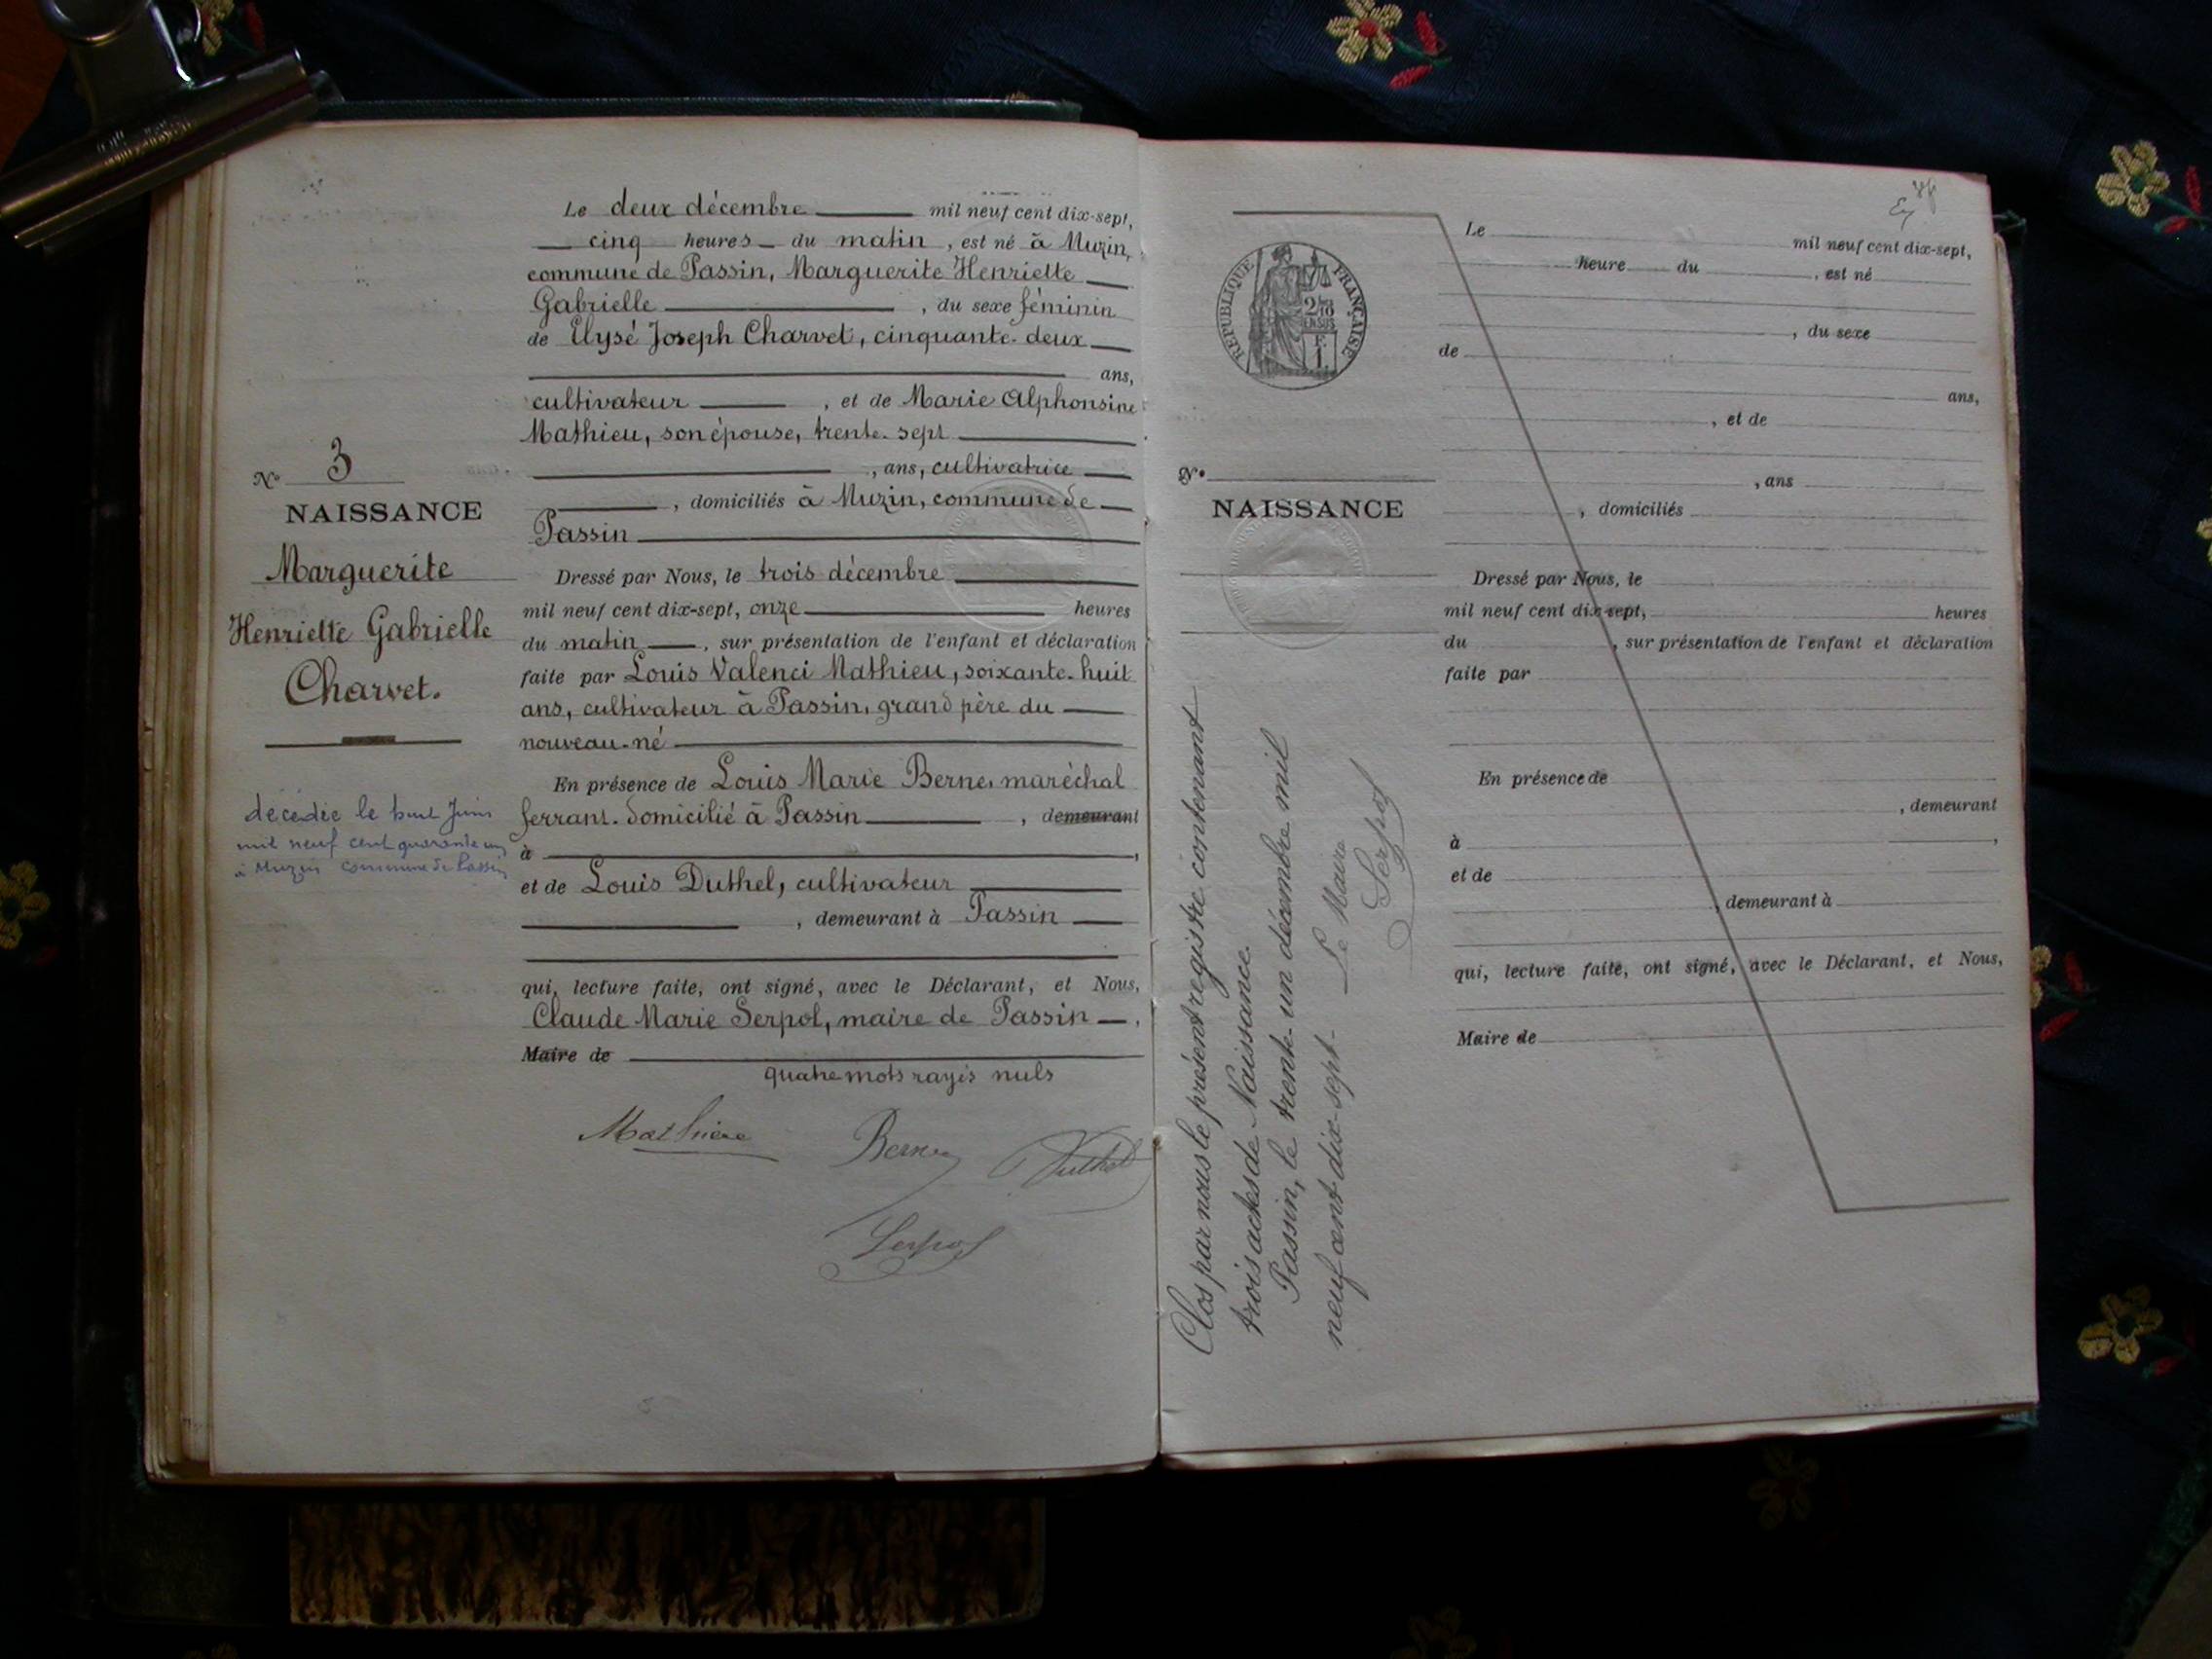 Le deux décembre mil neuf cent dix-sept,
cinq heures du matin, est né à Muzin,
commune de Passin, Marguerite Henriette
Gabrielle, du sexe féminin
de Elysé Joseph Charvet, cinquante-deux
ans,
cultivateur, et de Marie Alphonsine
Mathieu, son épouse, trente-sept
, ans, cultivatrice
, domiciliés à Muzin, commune de
Passin
Dressé par Nous, le trois décembre
mil neuf cent dix-sept, onze heures
du matin, sur présentation de l'enfant et déclaration
faite par Louis Valenci Mathieu, soixante-huit
ans, cultivateur à Passin, grand père du
nouveau-né
En présence de Louis Marie Berne, maréchal
ferrant. domicilié à Passin, demeurant
à ,
et de Louis Duthel, cultivateur
, demeurant à Passin
qui, lecture faite, ont signé, avec le Déclarant, et Nous,
Claude Marie Serpol, maire de Passin,
Maire de
quatre mots rayés nuls
Mathieu Berne Duthel
Serpol
N° 3
NAISSANCE
Marguerite
Henriette Gabrielle
Charvet.
décédée le huit Juin
mil neuf cent quarante un
à Muzin commune de Passin
RÉPUBLIQUE FRANÇAISE
2/10
EN SUS
F.
1.
N°
NAISSANCE
Clos par nous le présent registre contenant
trois actes de Naissance.
Passin, le trente-un décembre mil
neuf cent dix-sept.
Le Maire
Serpol
Le mil neuf cent dix-sept,
heure du , est né
, du sexe
de
ans,
, et de
, ans
, domiciliés
Dressé par Nous, le
mil neuf cent dix-sept, heures
du , sur présentation de l'enfant et déclaration
faite par
En présence de
, demeurant
à ,
et de
, demeurant à
qui, lecture faite, ont signé, avec le Déclarant, et Nous,
Maire de